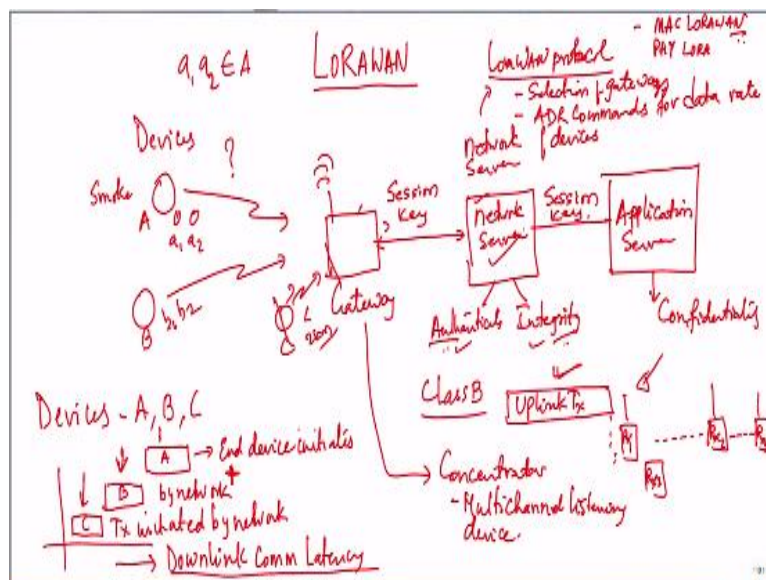 a1, a2 ∈ A
LORAWAN
LoRaWAN protocol
- MAC LORAWAN
PAY LORA
- Selection of gateways
- ADR Commands for data rate
of devices
Network
Server
Devices
?
Smoke
A
a1 a2
Session
Key
Network
Server
Session
Key
Application
Server
B
b1, b2
C
Gateway
Authenticates
Integrity
Confidentialis
Class B
Uplink Tx
Devices - A, B, C
A → End device initiates
B by network +
C Tx initiated by network
→ Downlink Comm Latency
Concentrator
- Multichannel listening
device.